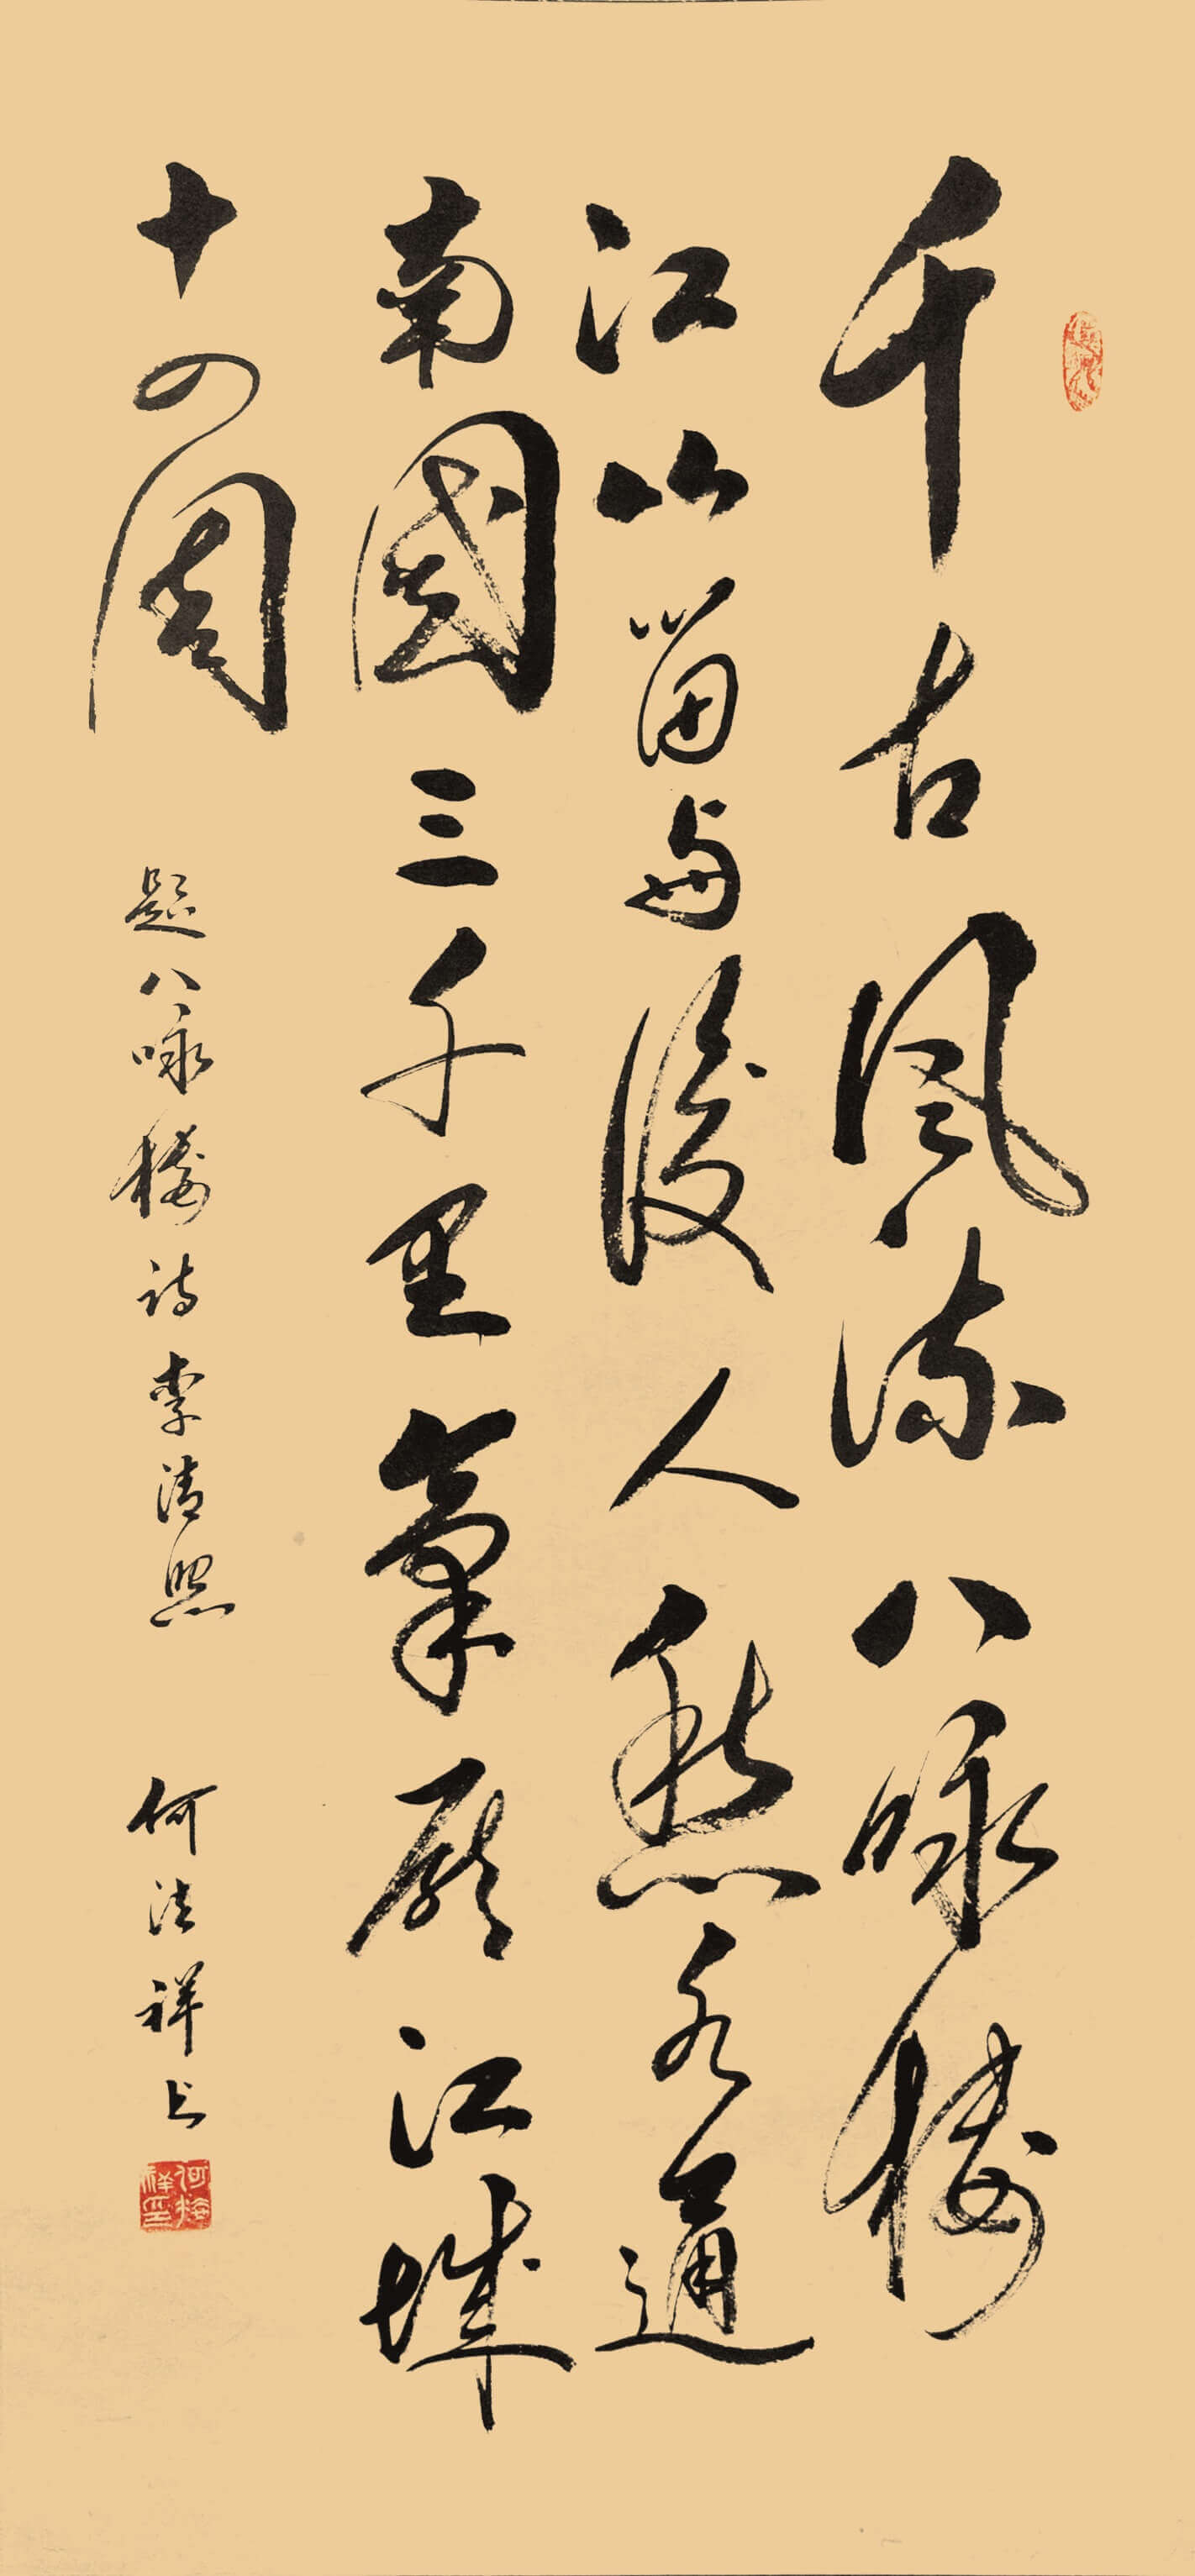 千古風流八咏樓
江山留与後人愁水通
南國三千里氣壓江城
十四周
題八咏樓詩李清照 何法祥书